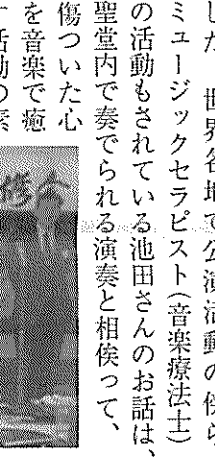 した。世界各地で公演活動の傍ら
ミュージックセラピスト(音楽療法士)
の活動もされている池田さんのお話は、
聖堂内で奏でられる演奏と相俟って、
傷ついた心
を音楽で癒
す活動の素